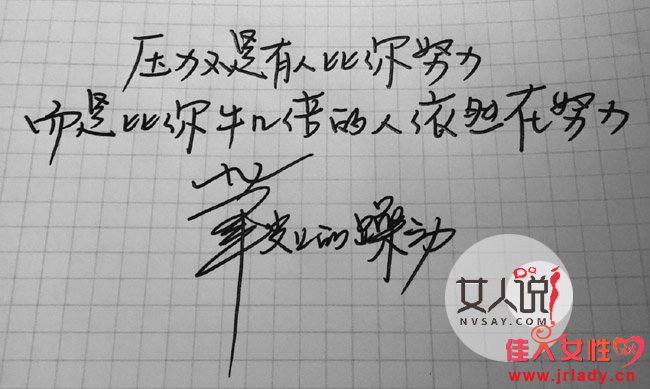 压力不是有人比你努力
而是比你牛几倍的人依然在努力
笔尖上的躁动
女人说
NVSAY.COM
佳人女性网
www.jrlady.cn